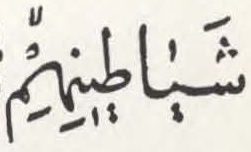 شَيَاطِينِهِمْ